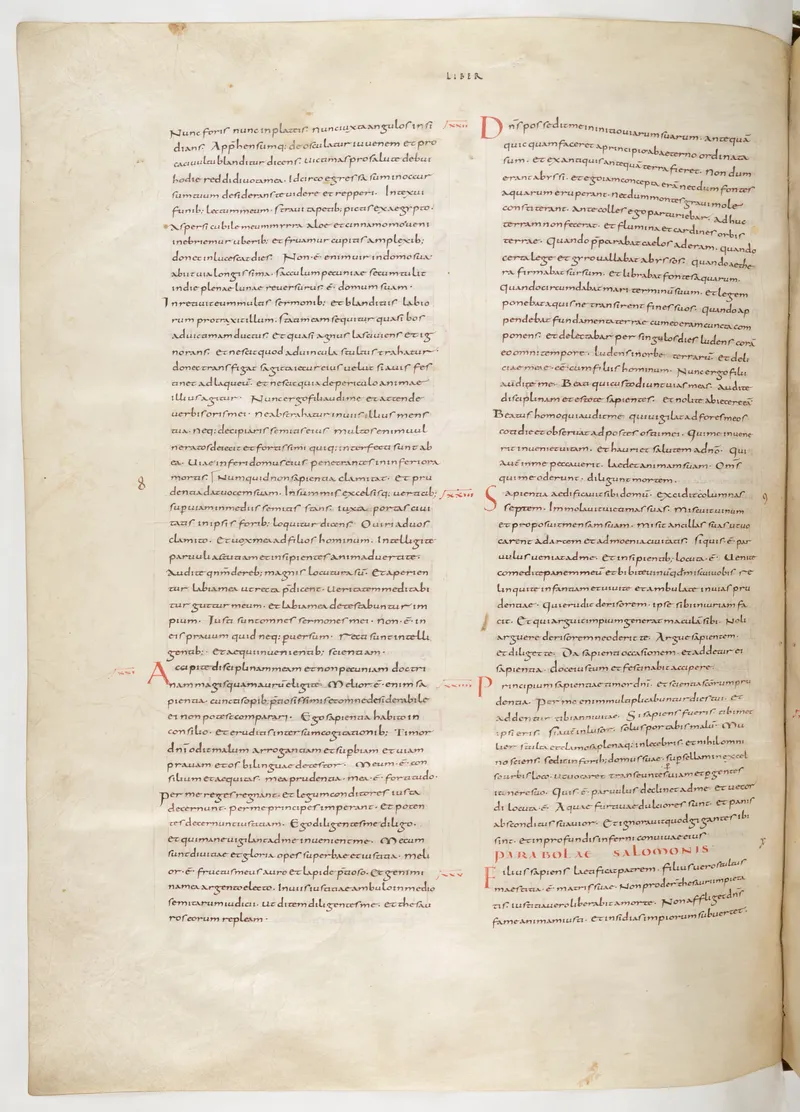 LIBER
Nunc foris nunc inplateis nunc iuxta angulos insi
dians. App̄hensumq; deosculatur iuuenem et pro
caci uultu blanditur dicens. uictimas pro salute debui
hodie reddidi uota mea. Idcirco egressa sum inoccur
sum tuum desiderans te uidere et repperi. Intexui
funib; lectum meum. straui tapetib; pictis ex aegypto.
Aspersi cubile meum myrra aloe et cinnamomo ueni
inebriemur uberib; et fruamur cupitis amplexib;
donec inlucescat dies. Non ē enim uir in domo sua
abiit uia longissima. sacculum pecuniae secum tulit
in die plenae lunae reuersurus ē domum suam.
Inretiuit eum multis sermonib; et blanditiis labio
rum protraxit illum. statim eam sequitur quasi bos
aductus ad uictimam. Et quasi agnus lasciuiens et ig
norans. Et nescit quod ad uincula stultus trahatur.
donec transfigat sagitta iecur eius uelut si auis fes
tinet ad laqueum. et nescit quia de periculo animae
illius agitur. Nunc ergo fili audi me et adtende
uerbis oris mei. ne abstrahatur in uiis illius mens
tua. neq; decipiaris semitis eius. multos enim uul
neratos deiecit et fortissimi quiq; interfecti sunt ab
ea. Uiae inferi domus eius penetrantes in inferiora
mortis. Numquid non sapientia clamitat. et pru
dentia dat uocem suam. In summis excelsisq; uerticib;
supra uiam in mediis semitis stans. iuxta portas ciui
tatis in ipsis forib; loquitur dicens. O uiri ad uos
clamito. et uox mea ad filios hominum. Intellegite
paruuli astutiam et insipientes animaduertite.
Audite qnm de reb; magnis locutura sū. Et aperien
tur labia mea ut recta p̄dicent. Ueritatem meditabi
tur guttur meum. et labia mea detestabuntur im
pium. Iusti sunt omnes sermones mei. non ē in
eis prauum quid neq; peruersum. recti sunt intelli
gentib;. et aequi inuenientib; scientiam.
Accipite disciplinam meam et non pecuniam doctri
nam magis quam aurū eligite. Melior ē enim sa
pientia cunctis opib; p̄tiosissimis et omne desiderabile
ei non potest comparari. Ego sapientia habito in
consilio. et eruditis intersum cogitationib;. Timor
dn̄i odit malum arrogantiam et supbiam et uiam
prauam et os bilingue detestor. Meum ē con
silium et aequitas. mea prudentia. mea ē fortitudo.
per me reges regnant. et legum conditores iusta
decernunt. per me principes imperant. et poten
tes decernunt iustitiam. Ego diligentes me diligo.
et qui mane uigilant ad me inuenient me. Mecum
sunt diuitiae et gloria. opes superbae et iustitia. meli
or ē fructus meus auro et lapide p̄tioso. et genimi
na mea argento electo. In uiis iustitiae ambulo in medio
semitarum iudicii. ut ditem diligentes me. et thesau
ros eorum repleam.
Dn̄s possedit me in initio uiarum suarum. antequā
quicquam faceret a principio ab aeterno ordinata
sum. et ex antiquis antequā terra fieret. Non dum
erant abyssi. et ego iam concepta erā necdum fontes
aquarum eruperant. necdum montes graui mole
constiterant. Ante colles ego parturiebar. adhuc
terram non fecerat. et flumina et cardines orbis
terrae. Quando p̄parabat caelos aderam. quando
certa lege et gyro uallabat abyssos. quando aethe
ra firmabat sursum. et librabat fontes aquarum.
Quando circumdabat mari terminū suum. et legem
ponebat aquis ne transirent fines suos. Quando ap
pendebat fundamenta terrae cum eo eram cuncta com
ponens. et delectabar per singulos dies ludens corā
eo omni tempore. ludens in orbe terrarū. et deli
ciae meae ēē cum filiis hominum. Nunc ergo filii
audite me. Beati qui custodiunt uias meas. Audite
disciplinam et estote sapientes. et nolite abicere eā.
Beatus homo qui audit me. qui uigilat ad fores meos
cotidie et obseruat ad postes osti mei. Qui me inuene
rit inueniet uitam. et hauriet salutem a dnō. Qui
autē in me peccauerit. laedet animam suam. Om̄s
qui me oderunt. diligunt mortem.
Sapientia aedificauit sibi domū. excidit columnas
septem. Immolauit uictimas suas. miscuit uinum
et proposuit mensam suam. misit ancillas suas ut uo
carent ad artem et ad moenia ciuitatis. Siquis ē par
uulus ueniat ad me. Et insipientib; locuta ē. Uenite
comedite panem meū et bibite uinū qd miscui uobis. re
linquite infantiam et uiuite. et ambulate in uiis pru
dentiae. Qui erudit derisorem. ipse sibi iniuriam fa
cit. Et qui arguit impium generat maculā sibi. Noli
arguere derisorem ne oderit te. Argue sapientem
et diliget te. Da sapienti occasionem. et addetur ei
sapientia. doce iustum et festinabit accipere.
Principium sapientiae timor dn̄i. et scientia scōrum pru
dentia. Per me enim multiplicabuntur dies tui. et
addentur tibi anni uitae. Si sapiens fueris tibimet
ipsi eris. si autē inlusor. solus portabis malū. Mu
lier stulta et clamosa plenaq; inlecebris. et nihil omni
no sciens. sedit in forib; domus suae. sup sellam in excel
so urbis loco. ut uocaret transeuntes uiam et pgentes
itinere suo. Quis ē paruulus declinet ad me. et uecor
di locuta ē. Aquae furtiuae dulciores sunt. et panis
absconditus suauior. Et ignorauit quod gigantes ibi
sint. et in profundis inferni conuiuae eius.
PARABOLAE SALOMONIS
Filius sapiens laetificat patrem. filius uero stultus
maestitia ē matris suae. Non proder̄ thesauri impieta
tis. iustitia uero liberabit a morte. Non affliget dn̄s
fame animam iusti. et insidias impiorum subuertet.